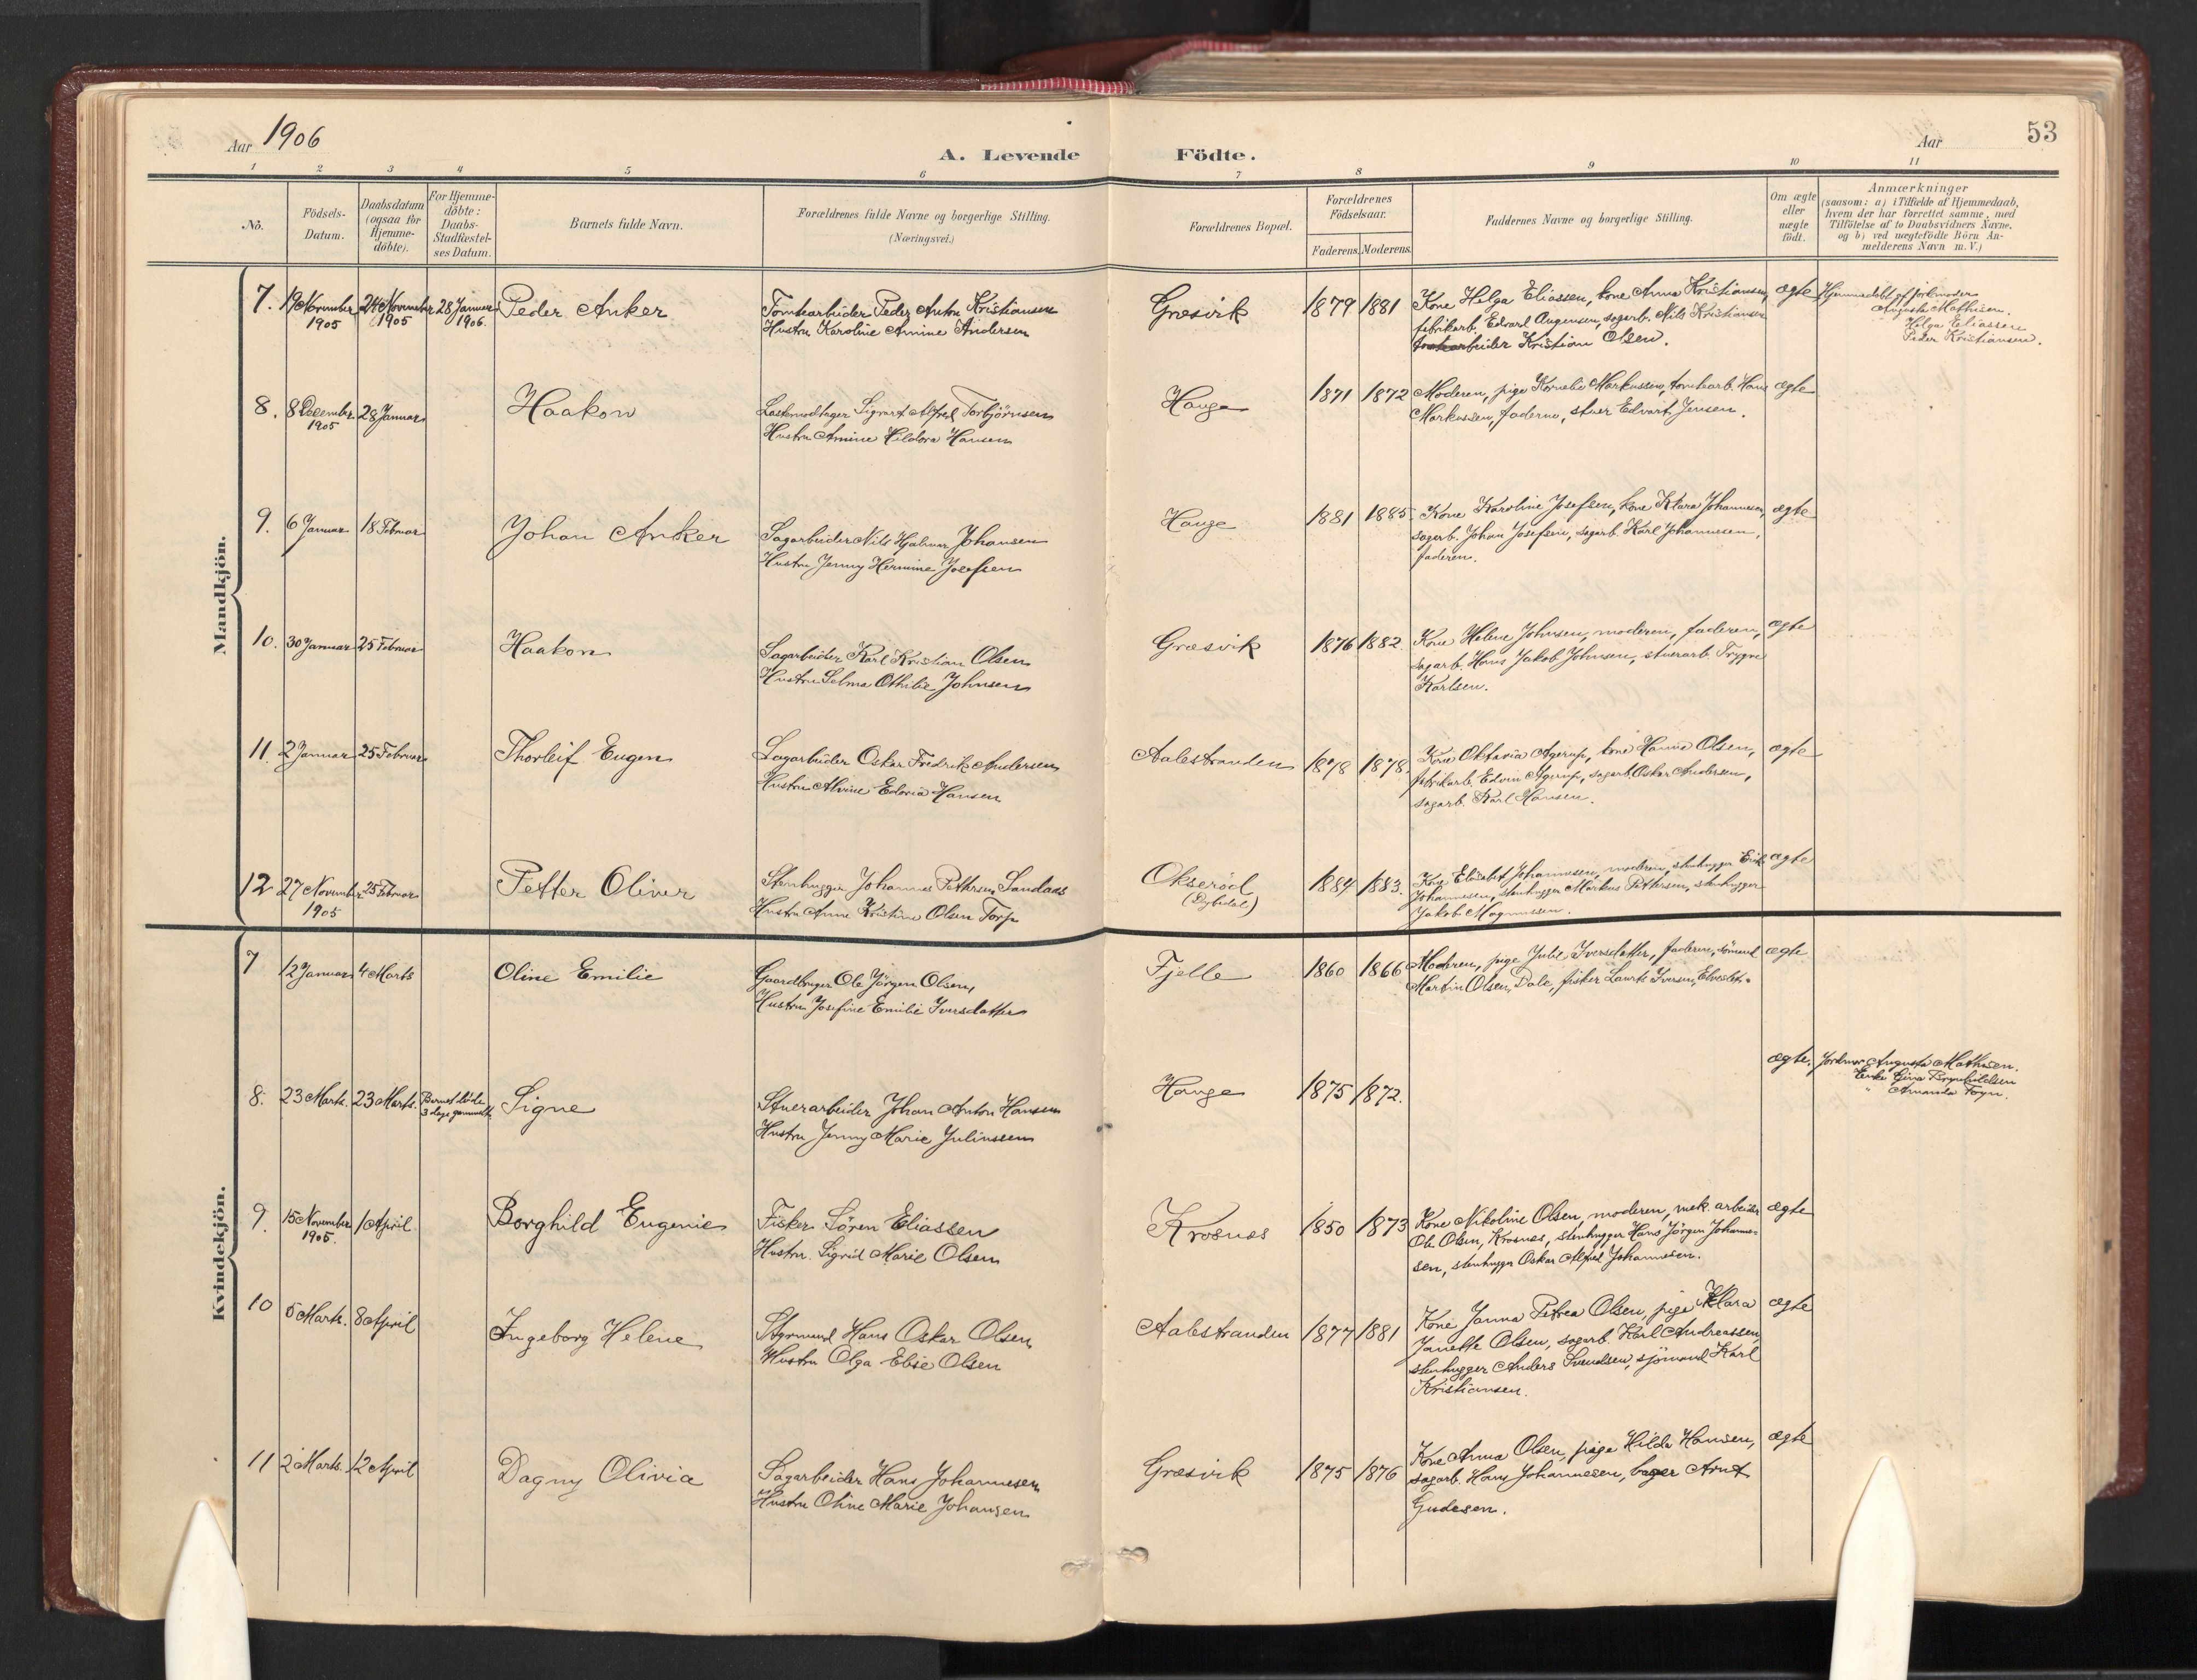 Aar 1906
A. Levende Födte.
Aar
53
1 2 3 4 5 6 7 8 9 10 11
No.
Födsels-
Datum.
Daabsdatum
(ogsaa for
Hjemme-
döbte).
For Hjemme-
döbte:
Daabs-
Stadfæstel-
ses Datum.
Barnets fulde Navn.
Forældrenes fulde Navne og borgerlige Stilling.
(Næringsvei.)
Forældrenes Bopæl.
Forældrenes
Födselsaar.
Faderens. Moderens.
Faddernes Navne og borgerlige Stilling.
Om ægte
eller
uægte
födt.
Anmærkninger
(saasom: a) i Tilfælde af Hjemmedaab,
hvem der har forrettet samme, med
Tilföielse af to Daabsvidners Navne,
og b) ved uægtefödte Börn An-
melderens Navn m. V.)
Mandkjön.
7. 19 November 1905
24 November 1905
28 Januar 1906.
Peder Anker
Tomtearbeider Peder Anton Kristiansen
Hustru Karoline Amine Andersen
Græsvik
1879 1881
Kone Helga Eliassen, kone Anna Kristiansen,
fabrikarb. Edvard Augensen, sagarb. Nils Kristiansen
tomtearbeider Kristian Olsen.
ægte
Hjemmedøbt af jordmoder
Augusta Mathisen.
Helga Eliassen
Peder Kristiansen.
8. 8 December 1905
28 Januar
Haakon
Lastemodtager Sigvart Alfred Torbjörnsen
Hustru Amine Hildora Hansen
Hauge
1871 1872
Moderen, pige Kornelie Markussen, tomtearb. Hans
Markussen, faderen, stuer Edvart Jensen.
ægte
9. 6 Januar 18 Februar
Johan Anker
Sagarbeider Nils Hjalmar Johansen
Hustru Jenny Hermine Josefsen
Hauge
1881 1885
Kone Karoline Josefsen, kone Klara Johannesen,
sagarb. Johan Josefsen, sagarb. Karl Johannesen,
faderen.
ægte
10. 30 Januar 25 Februar
Haakon
Sagarbeider Karl Kristian Olsen
Hustru Selma Othilie Johnsen
Græsvik
1876 1882.
Kone Helene Johnsen, moderen, faderen,
sagarb. Hans Jakob Johnsen, stuerarb. Trygve
Karlsen.
ægte
11. 2 Januar 25 Februar
Thorleif Eugen
Sagarbeider Oskar Fredrik Andersen
Hustru Alvine Edoria Hansen
Aalestranden
1878 1878.
Kone Oktavia Agerup, kone Hanna Olsen,
fabrikarb. Edvin Agerup, sagarb. Oskar Andersen,
sagarb. Karl Hansen.
ægte
12 27 November 1905
25 Februar
Petter Oliver
Stenhugger Johannes Pettersen Sandaas
Hustru Anne Kristine Olsen Torp
Okseröd
(Dybedal)
1884 1883.
Kone Elisabet Johannesen, moderen, stenhugger Erik
Johannesen, stenhugger Markus Pettersen, stenhugger
Jakob Magnussen.
ægte
Kvindekjön.
7 12 Januar 4 Marts
Oline Emilie
Gaardbruger Ole Jörgen Olsen,
Hustru Josefine Emilie Iversdatter
Fjelle
1860 1866
Moderen, pige Julie Iversdatter, faderen, sömand
Martin Olsen, Dale, fisker Laurits Iversen,
ægte
8. 23 Marts. 23 Marts.
Barnet döde
3 dage gammelt.
Signe
Stuerarbeider Johan Anton Hansen
Hustru Jenny Marie Juliussen
Hauge
1875 1872.
ægte.
Jordmor Augusta Mathisen.
Enke Gina Brynhildsen
" Amanda Fogn.
9. 15 November 1905.
1 April
Borghild Eugenie
Fisker Sören Eliassen
Hustru Sigrid Marie Olsen
Krosnes
1850 1873
Kone Nikoline Olsen, moderen, mek. arbeider
Ole Olsen, Krosnes, stenhugger Hans Jörgen Johanne-
sen, stenhugger Oskar Alfred Johannesen.
ægte
10 5 Marts. 8 April
Ingeborg Helene
Styrmand Hans Oskar Olsen
Hustru Olga Elise Olsen
Aalestranden
1877 1881
Kone Janna Petrea Olsen, pige Klara
Janette Olsen, sagarb. Karl Andreassen
stenhugger Anders Svendsen, sjömand Karl
Kristiansen.
ægte
11 2 Marts. 12 April
Dagny Olivia
Sagarbeider Hans Johannesen
Hustru Oline Marie Johansen
Græsvik
1875 1876
Kone Anna Olsen, pige Hilda Hansen,
sagarb. Hans Johannesen, bager Arnt
Gudesen.
ægte